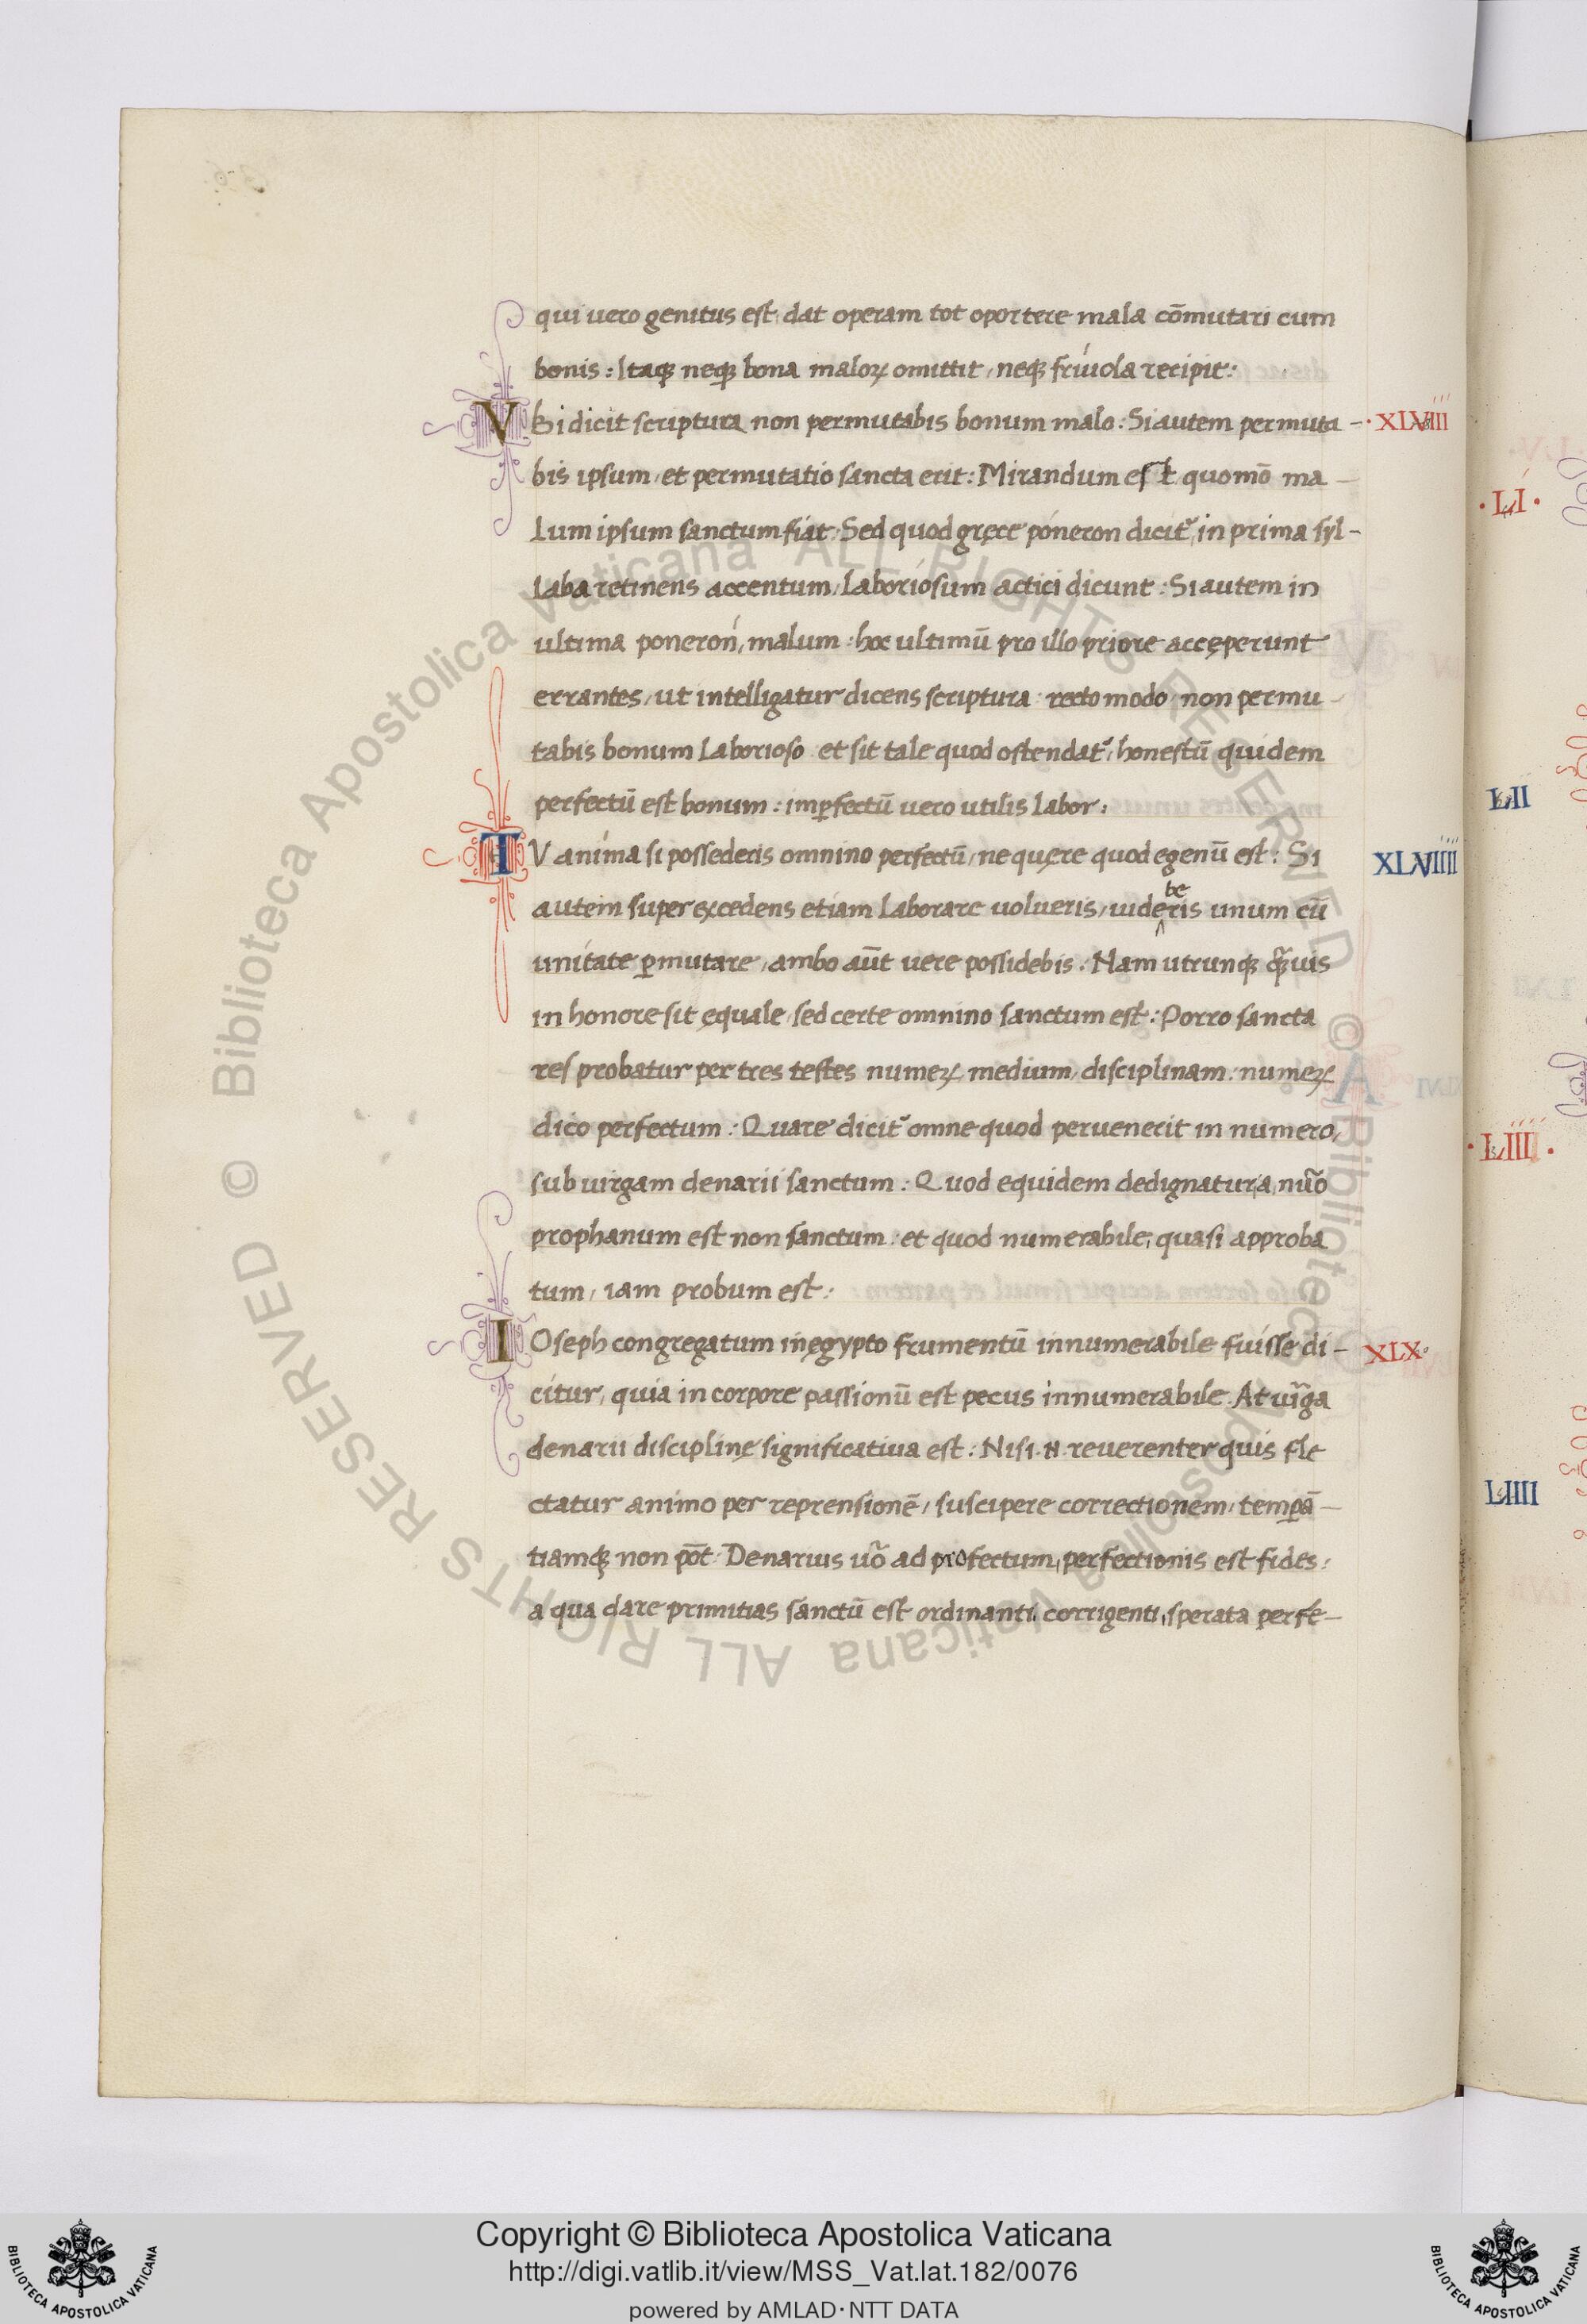 qui uero genitus est, dat operam tot oportere mala cōmutari cum
bonis: Itaqȝ neqȝ bona maloꝝ omittit, neqȝ friuola recipit:
VBi dicit scriptura non permutabis bonum malo: Si autem permuta- ·XLVIII
bis ipsum, et permutatio sancta erit: Mirandum est quomō ma-
lum ipsum sanctum fiat. Sed quod gręce póneron dicit᷑, in prima syl-
laba retinens accentum, laboriosum actici dicunt: Si autem in
ultima poneron, malum: hoc ultimū pro illo priore accęperunt
errantes, ut intelligatur dicens scriptura recto modo non permu-
tabis bonum laborioso et sit tale quod ostendat᷑, honestū quidem
perfectū est bonum: imꝑfectū uero utilis labor:
TV anima si possederis omnino perfectū, ne quęre quod egenū est: Si XLVIIII
be
autem super excedens etiam laborare uolueris, uideris unum cū
unitate ꝑmutare, ambo aūt uere possidebis: Nam utrunqȝ quāuis
in honore sit ęquale, sed certe omnino sanctum est: Porro sancta
res probatur per tres testes numeꝝ, medium, disciplinam: numeꝝ
dico perfectum: Quare dicit᷑ omne quod peruenerit in numero,
sub uirgam denarii sanctum: Quod equidem dedignatur a nūo
prophanum est non sanctum: et quod numerabile, quasi approba
tum, iam probum est:
IOseph congregatum in ęgypto frumentū innumerabile fuisse di- XLX·
citur, quia in corpore passionū est pecus innumerabile. At uirga
denarii disciplinę significatiua est: Nisi .n. reuerenter quis fle
ctatur animo per reprensionē, suscipere correctionem, temꝑā-
tiamqȝ non pōt: Denarius uō ad profectum, perfectionis est fides:
a qua dare primitias sanctū est ordinanti, corrigenti, sperata perfe-
·LI·
LII
·LIII·
LIIII
© Biblioteca Apostolica Vaticana ALL RIGHTS RESERVED © Biblioteca Apostolica Vaticana ALL RIGHTS RESERVED
Copyright © Biblioteca Apostolica Vaticana
http://digi.vatlib.it/view/MSS_Vat.lat.182/0076
powered by AMLAD·NTT DATA
BIBLIOTECA APOSTOLICA VATICANA
BIBLIOTECA APOSTOLICA VATICANA